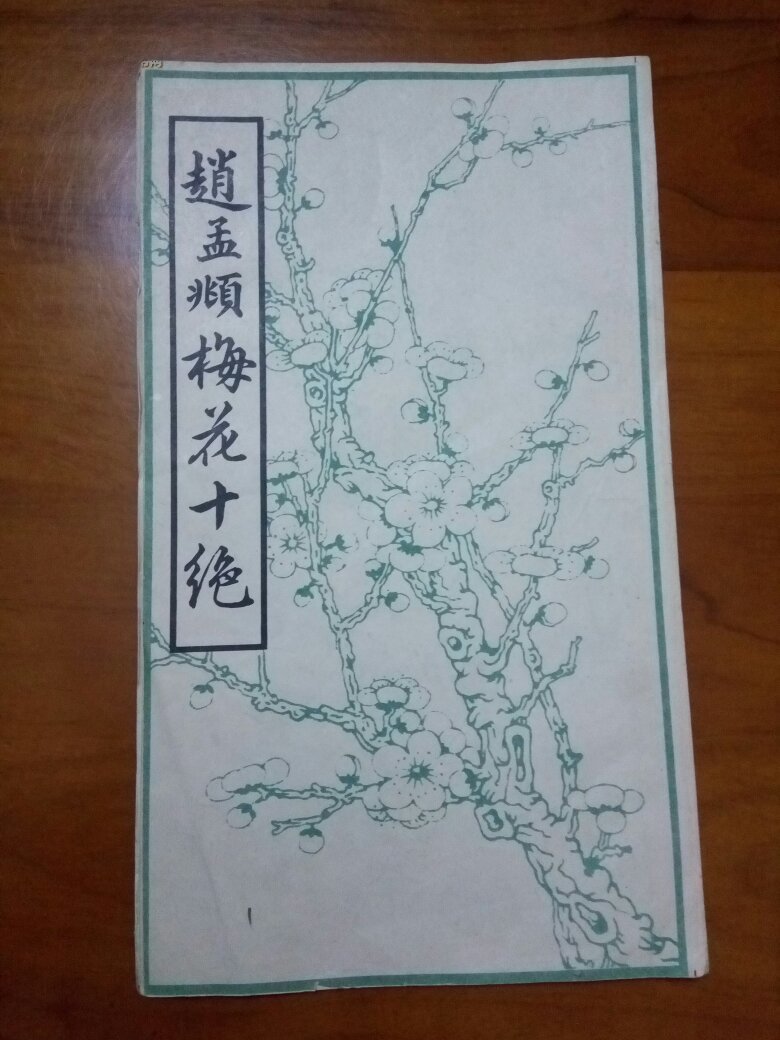 趙孟頫梅花十絶